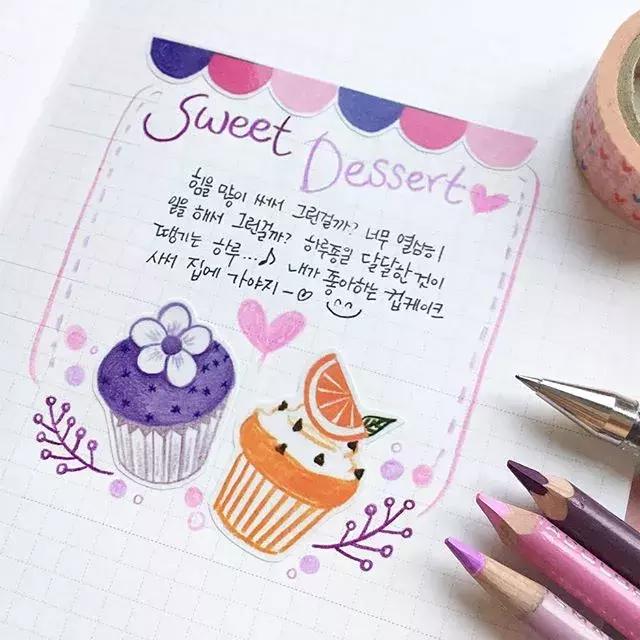 Sweet
Dessert
힘을 많이 써서 그런걸까? 너무 열심히
일을 해서 그런걸까? 하루종일 달달한 것이
땡기는 하루...♪ 내가 좋아하는 컵케이크
사서 집에 가야지~♡